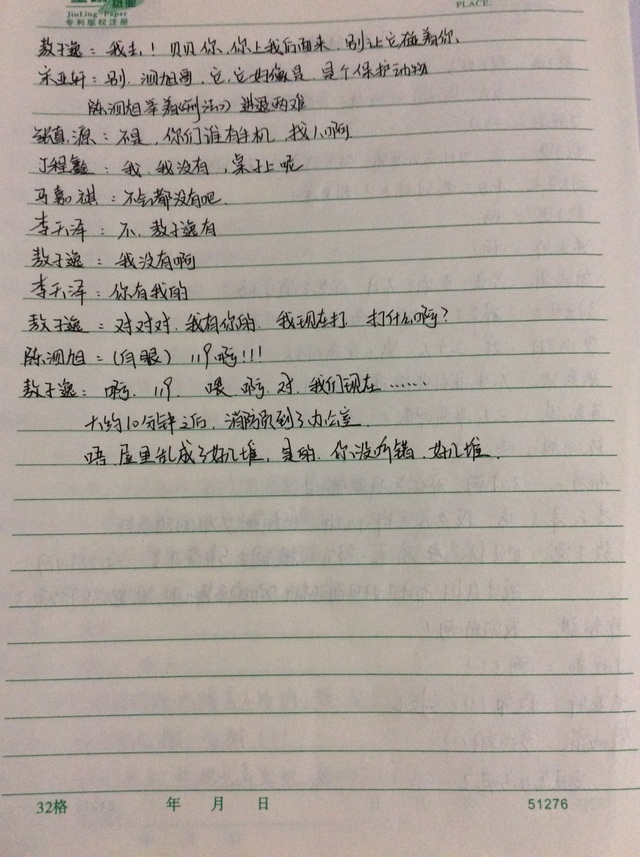 JinLing Paper
专利版权注册
PLACE
敖子逸：我去！贝贝你,你上我后面来,别让它碰着你
宋亚轩：别,泗旭哥,它,它好像是,是个保护动物
陈泗旭举着《刑法》进退两难
张真源：不是,你们谁有手机,找人啊
丁程鑫：我,我没有,桌子上呢
马嘉祺：不会都没有吧.
李天泽：不,敖子逸有
敖子逸：我没有啊
李天泽：你有我的
敖子逸：对对对,我有你的,我现在打,打什么啊？
陈泗旭：（白眼）119啊!!!
敖子逸：啊,119,喂,啊,对,我们现在……
大约10分钟之后,消防员到了办公室.
唔,屋里乱成了好几堆,是的,你没听错,好几堆.
32格
年 月 日
51276